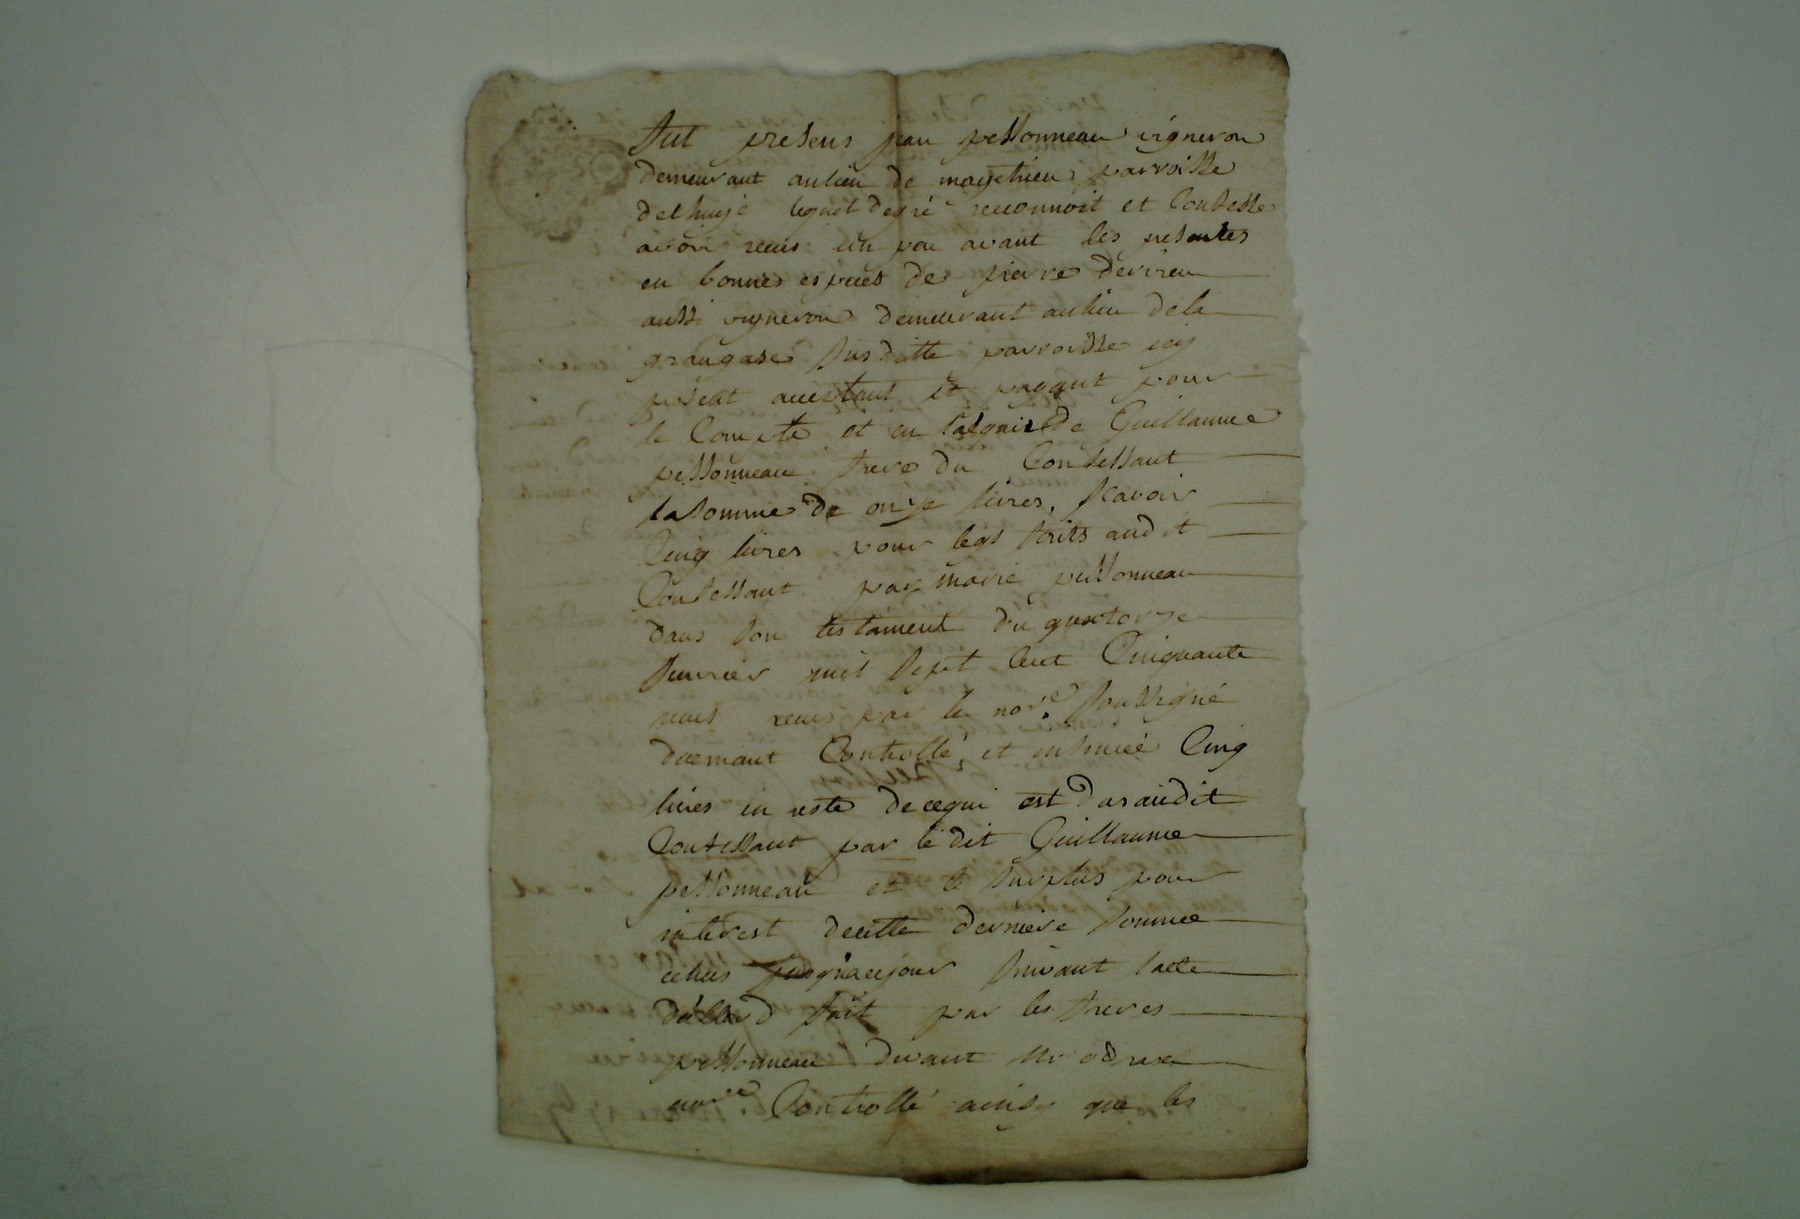 fut presens jean pessonneau vigneron
demeurant au lieu de mayethieu parroisse
delhuys lequel degré reconnoit et Confesse
avoir receus un peu avant les presentes
en bonnes especes de pierre dervieu
aussi vigneron demeurant au lieu de la
grangase susditte parroisse icy
present acceptant et payant pour
le Compte et en l'acquis de Guillaume
pessonneau frere du Confessant
la somme de onze livres, scavoir
Cinq livres pour legs faits audit
Confessant par marie pessonneau
dans son testament du quatorze
fevrier mil sept cent Cinquante
receus par le nore soussigné
duemant Controllé, et insinué Cinq
livres en reste de cequi est du audit
Confessant par le dit Guillaume
pessonneau et le surplus pour
interest decette derniere somme
echus jusqu'acejour suivant l'acte
fait par les freres
pessonneau devant
nore Controllé ainsy que les